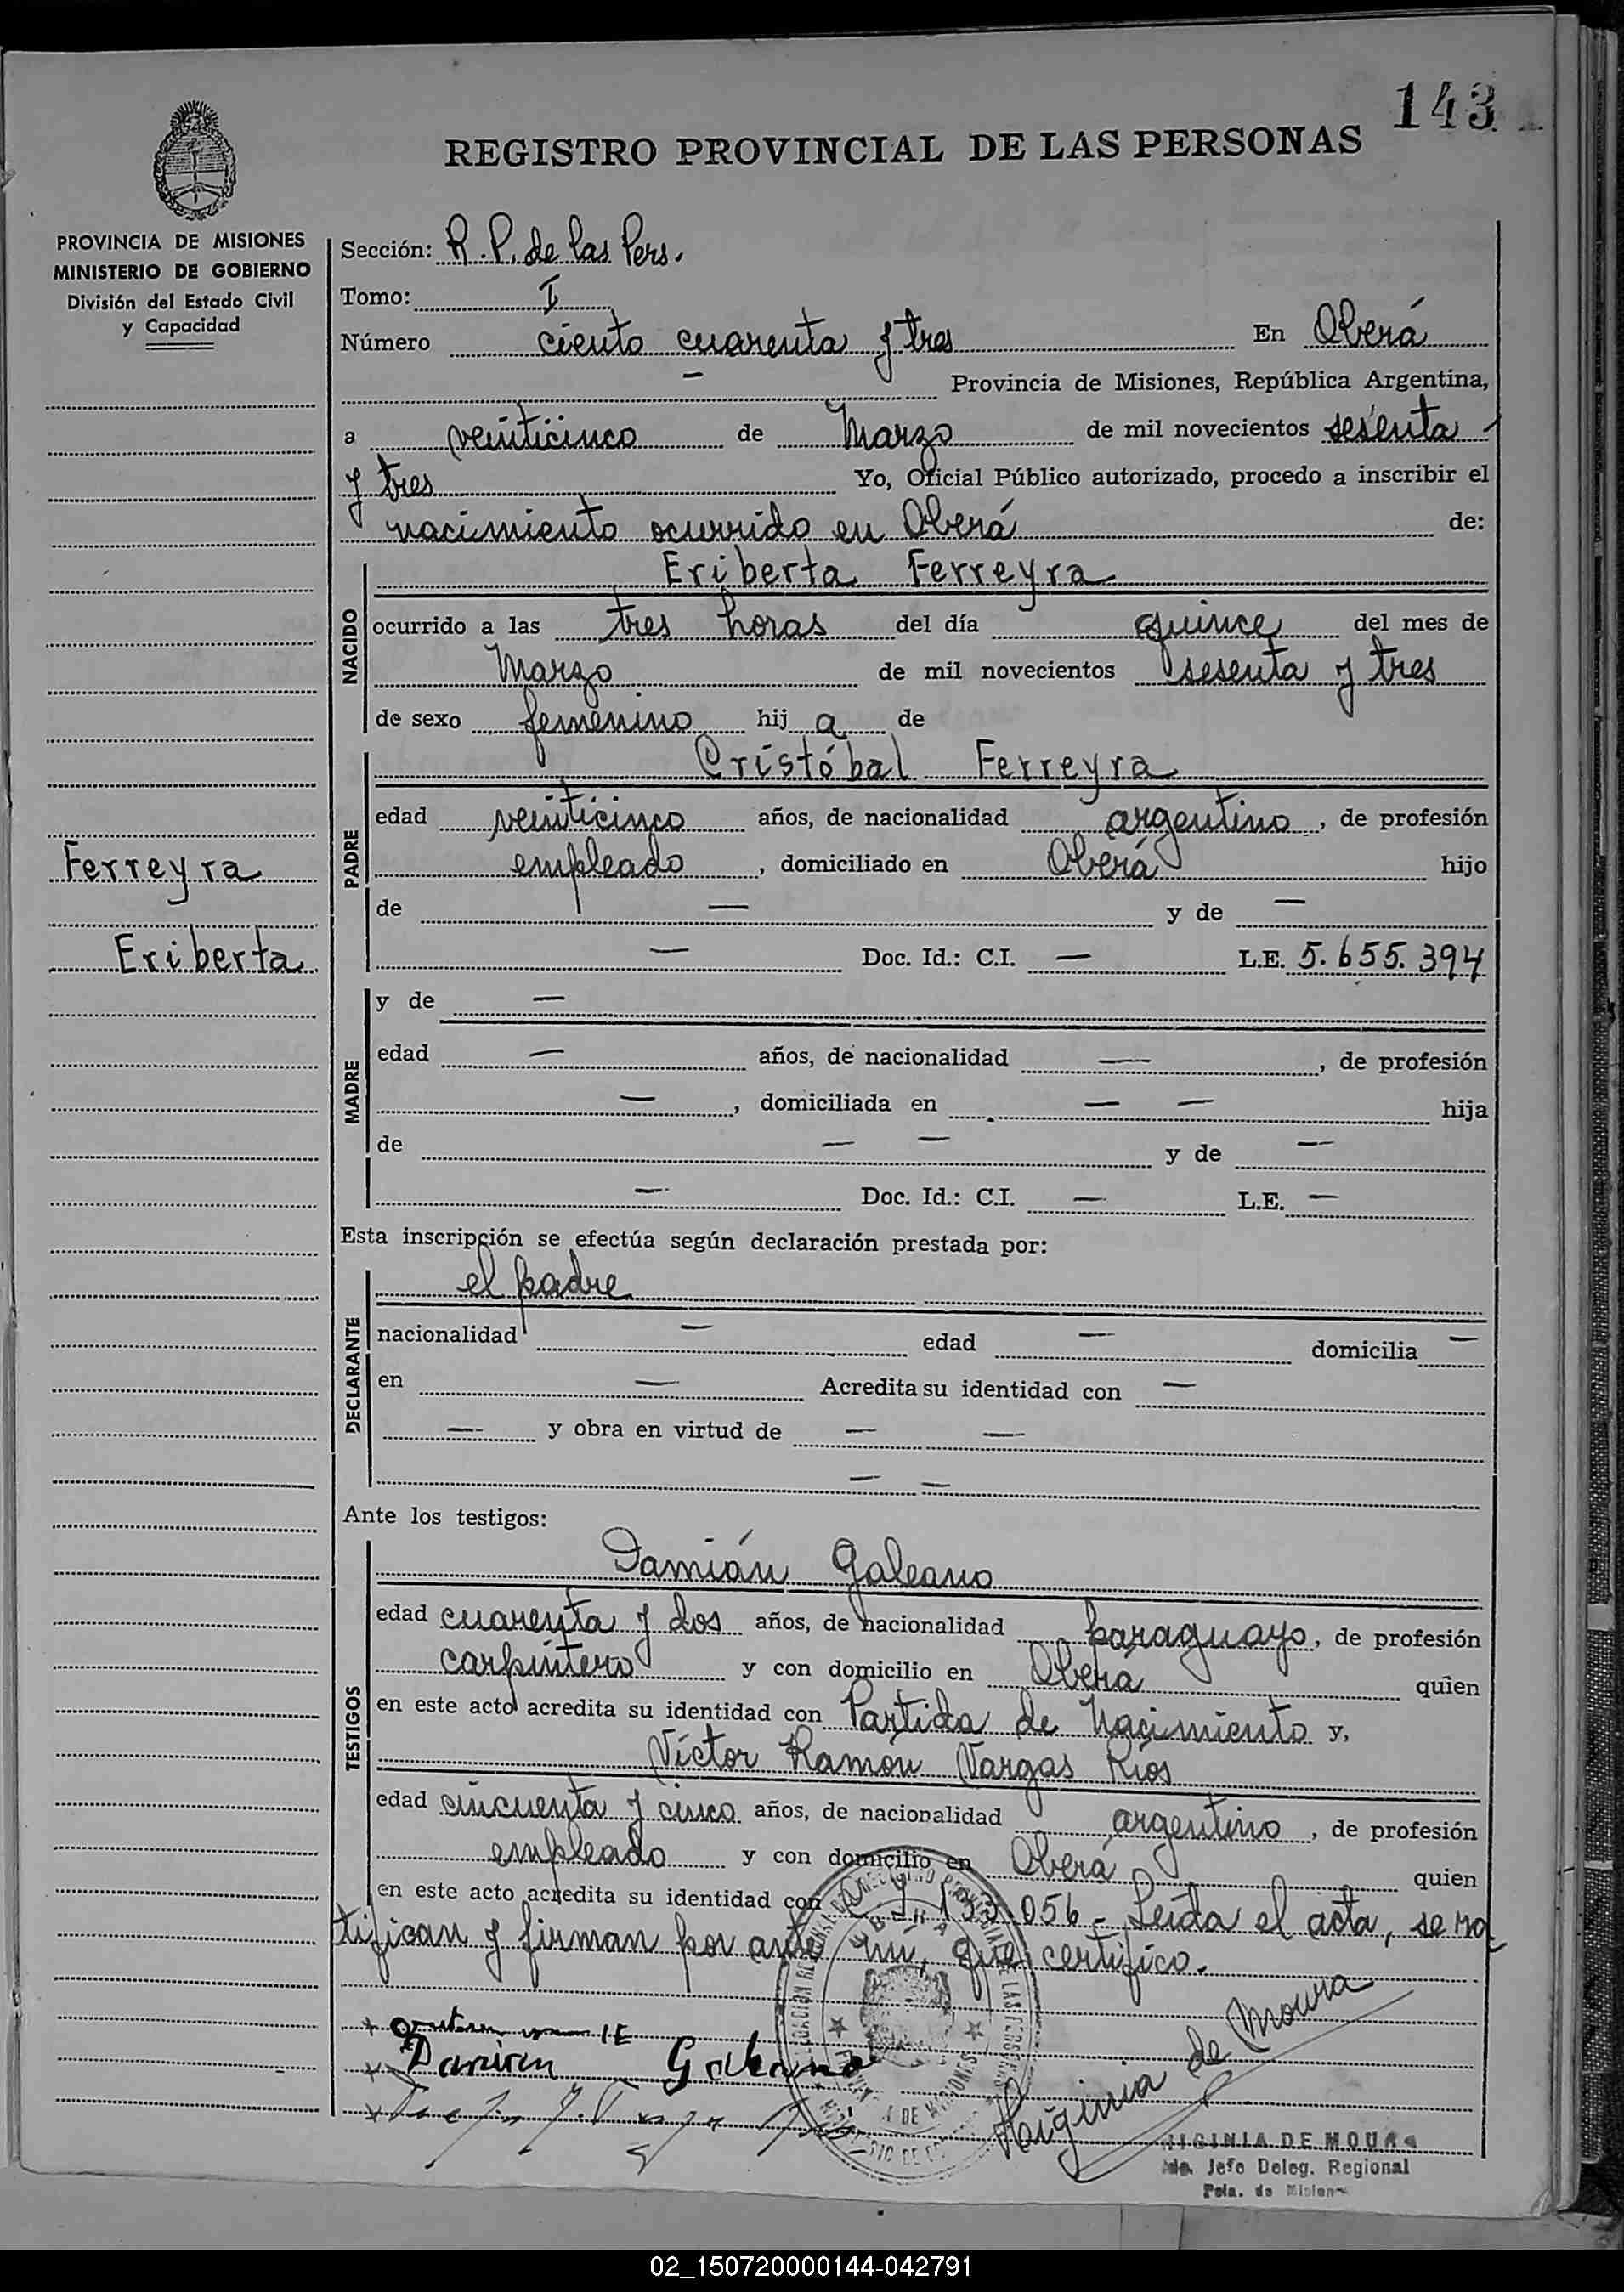 143
REGISTRO PROVINCIAL DE LAS PERSONAS
PROVINCIA DE MISIONES
MINISTERIO DE GOBIERNO
División del Estado Civil
y Capacidad
Sección: R. P. de las Pers.
Tomo: I
Número ciento cuarenta y tres En Oberá
— Provincia de Misiones, República Argentina,
a veinticinco de Marzo de mil novecientos sesenta
y tres Yo, Oficial Público autorizado, procedo a inscribir el
nacimiento ocurrido en Oberá de:
NACIDO
Eriberta Ferreyra
ocurrido a las tres horas del día quince del mes de
Marzo de mil novecientos sesenta y tres
de sexo femenino hij a de
PADRE
Cristóbal Ferreyra
edad veinticinco años, de nacionalidad argentino, de profesión
empleado, domiciliado en Oberá hijo
de — y de —
— Doc. Id.: C.I. — L.E. 5.655.394
Ferreyra
Eriberta
MADRE
y de —
edad — años, de nacionalidad —, de profesión
—, domiciliada en — — hija
de — — y de —
— Doc. Id.: C.I. — L.E. —
Esta inscripción se efectúa según declaración prestada por:
DECLARANTE
el padre
nacionalidad — edad — domicilia —
en — Acredita su identidad con —
— y obra en virtud de — —
— —
Ante los testigos:
TESTIGOS
Damián Galeano
edad cuarenta y dos años, de nacionalidad paraguayo, de profesión
carpintero y con domicilio en Oberá quien
en este acto acredita su identidad con Partida de Nacimiento y,
Víctor Ramón Vargas Ríos
edad cincuenta y cinco años, de nacionalidad argentino, de profesión
empleado y con domicilio en Oberá quien
en este acto acredita su identidad con 133.056 - Leída el acta, se ra
tifican y firman por ante mi, que certifico.
Damian Galeano
Higinia de Moura
HIGINIA DE MOURA
Jefe Deleg. Regional
Pcia. de Misiones
02_150720000144-042791